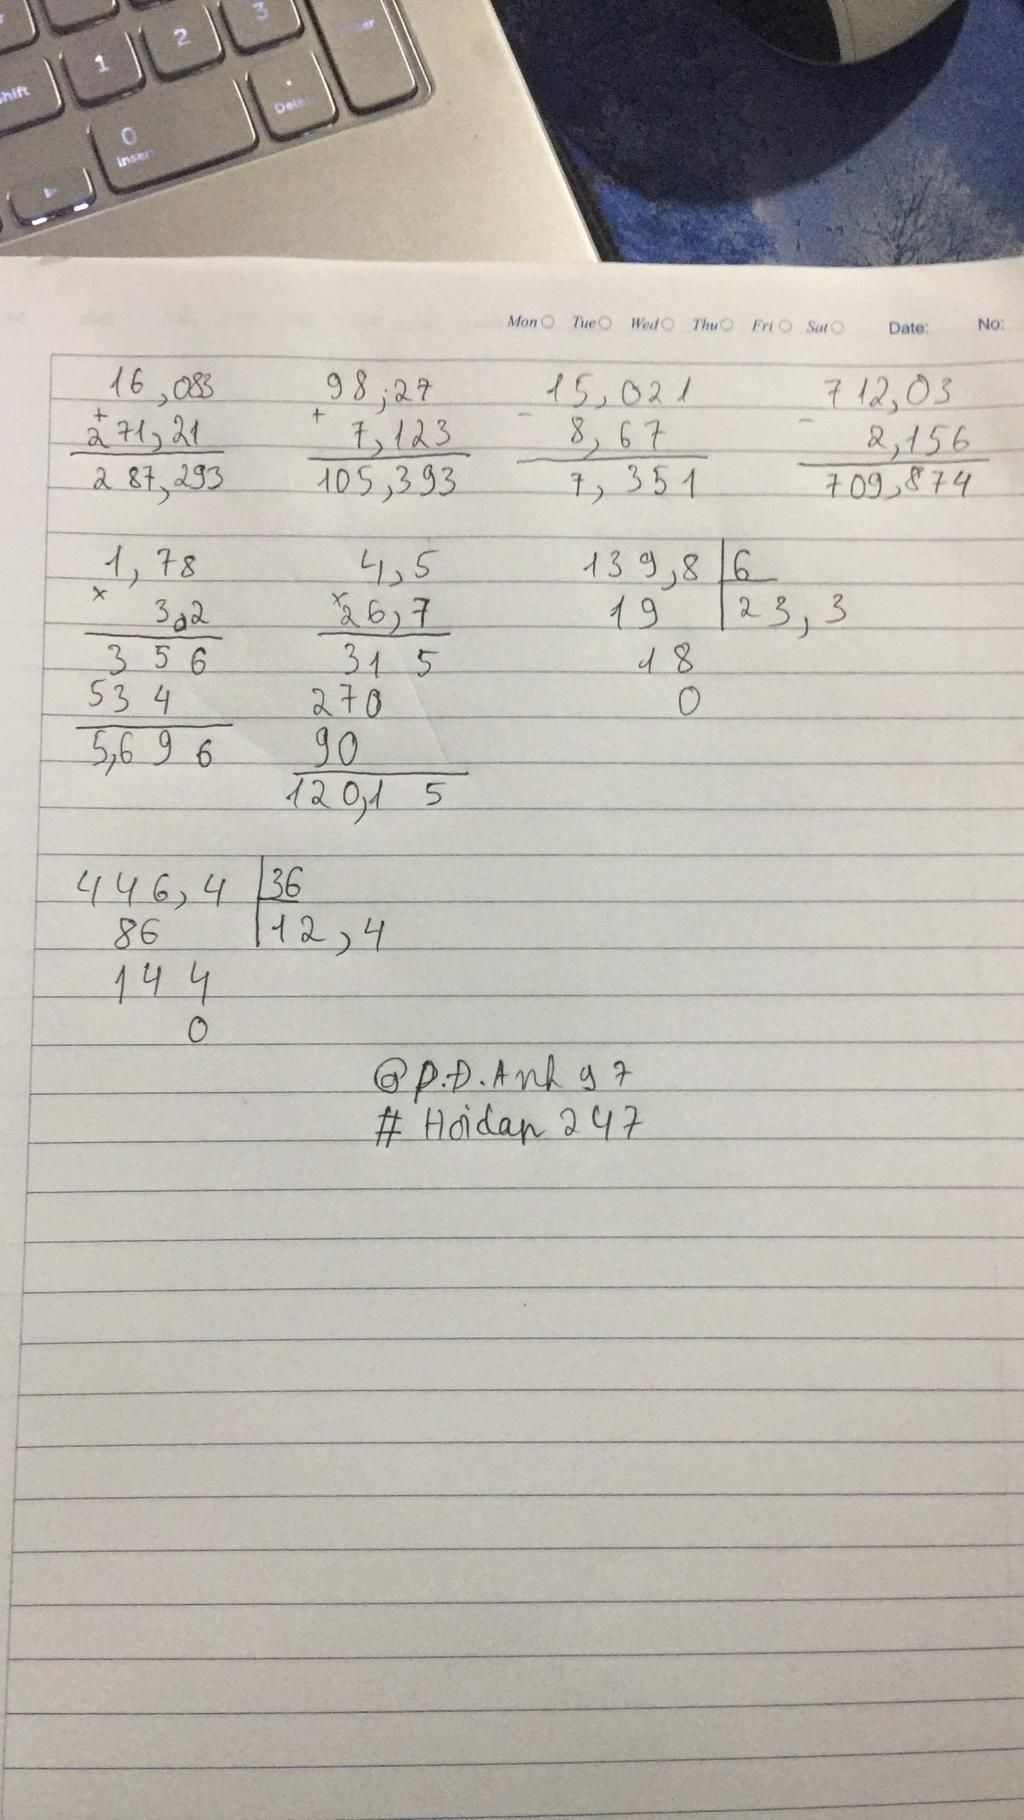 1 2 3 Enter
Shift
0 Insert . Delete
Mon Tue Wed Thu Fri Sat Date: No:
16,083 98,27 15,021 712,03
+ + - -
271,21 7,123 8,67 2,156
287,293 105,393 7,351 709,874
1,78 4,5 139,8 6
x x
3,2 26,7 19 23,3
356 315 18
534 270 0
5,696 90
120,15
446,4 36
86 12,4
144
0
@P.D.Anh97
#Hoidap247